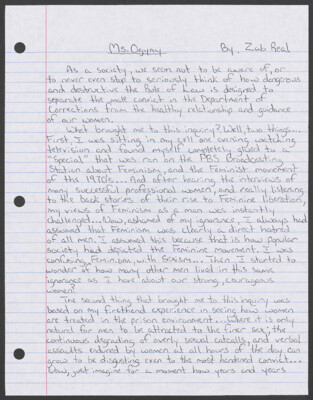 Ms.Ogyny By, Zab Real
As a society, we seem not to be aware of, or
to never even stop to seriously think of how dangerous
and destructive the Rule of Law is designed to
separate the male convict in the Department of
Corrections from the healthy relationship and guidance
of our women.
What brought me to this inquiry? Well, two things...
First, I was sitting in my cell one evening watching
television and found myself completely glued to a
"Special" that was ran on the PBS Broadcasting
Station about Feminism, and the Feminist movement
of the 1970's.... And after hearing the interviews of
many successful professional women, and really listening
to the back stories of their rise to Feminine liberation,
my views of Feminism as a man was instantly
challenged... Now, ashamed of my ignorance, I always had
assumed that Feminism was clearly a direct hatred
of all men. I assumed this because that is how popular
society had depicted the Feminine movement. I was
confusing Feminism, with Sexism.... Then I started to
wonder at how many other men lived in this same
ignorance as I have about our strong, courageous
women?
The second thing that brought me to this inquiry was
based on my firsthand experience in seeing how women
are treated in the prison environment... Where it is only
natural for men to be attracted to the finer sex, the
continuous degrading of overly sexual catcalls, and verbal
assaults endured by women at all hours of the day can
grow to be disgusting even to the most hardened convict....
Now, just imagine for a moment how years and years